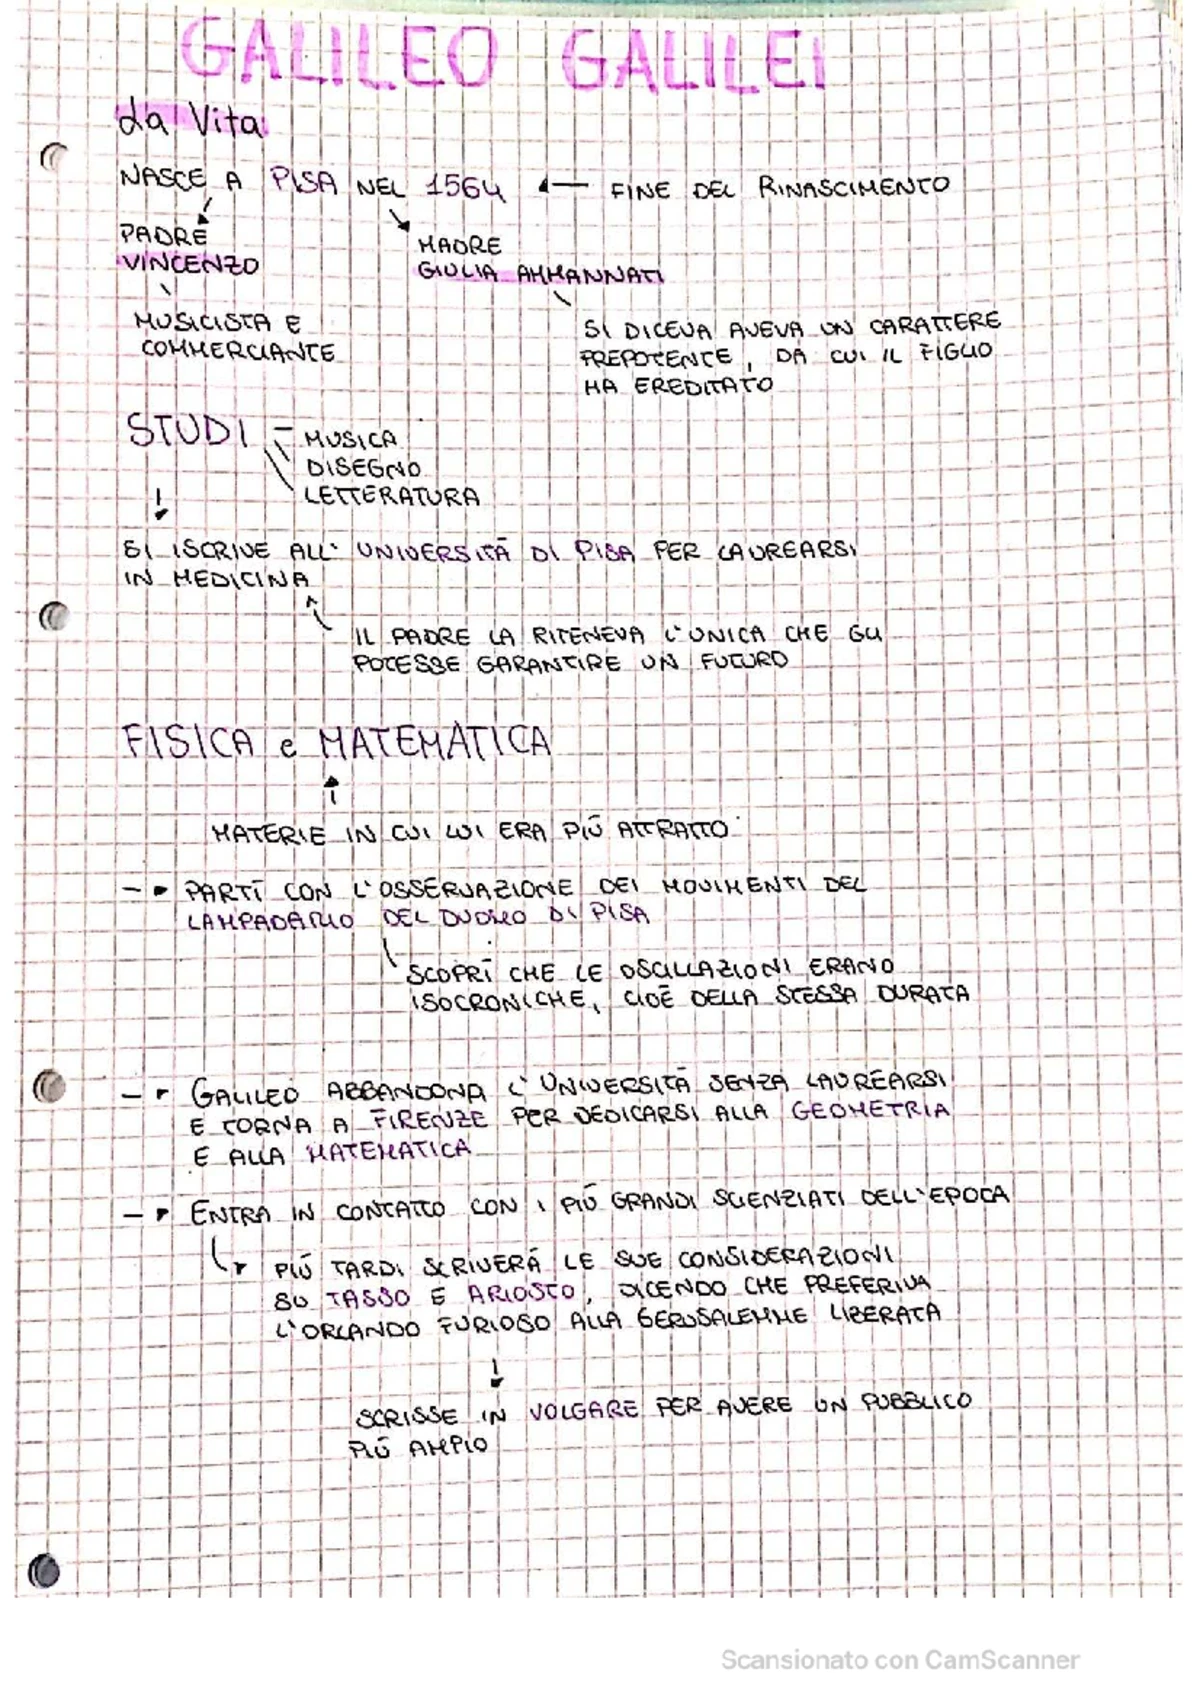 GALILEO GALILEI
La Vita
NASCE A PISA NEL 1564 ← FINE DEL RINASCIMENTO
PADRE
VINCENZO
MADRE
GIULIA AMMANNATI
MUSICISTA E
COMMERCIANTE
SI DICEVA AVEVA UN CARATTERE
PREPOTENTE, DA CUI IL FIGLIO
HA EREDITATO
STUDI
MUSICA
DISEGNO
LETTERATURA
SI ISCRIVE ALL' UNIVERSITÀ DI PISA PER LAUREARSI
IN MEDICINA
IL PADRE LA RITENEVA L'UNICA CHE GLI
POTESSE GARANTIRE UN FUTURO
FISICA e MATEMATICA
MATERIE IN CUI LUI ERA PIÙ ATTRATTO
PARTÌ CON L'OSSERVAZIONE DEI MOVIMENTI DEL
LAMPADARIO DEL DUOMO DI PISA
SCOPRÌ CHE LE OSCILLAZIONI ERANO
ISOCRONICHE, CIOÈ DELLA STESSA DURATA
GALILEO ABBANDONA L'UNIVERSITÀ SENZA LAUREARSI
E TORNA A FIRENZE PER DEDICARSI ALLA GEOMETRIA
E ALLA MATEMATICA
ENTRA IN CONTATTO CON I PIÙ GRANDI SCIENZIATI DELL'EPOCA
PIÙ TARDI SCRIVERÀ LE SUE CONSIDERAZIONI
SU TASSO E ARIOSTO, DICENDO CHE PREFERIVA
L'ORLANDO FURIOSO ALLA GERUSALEMME LIBERATA
SCRISSE IN VOLGARE PER AVERE UN PUBBLICO
PIÙ AMPIO
Scansionato con CamScanner